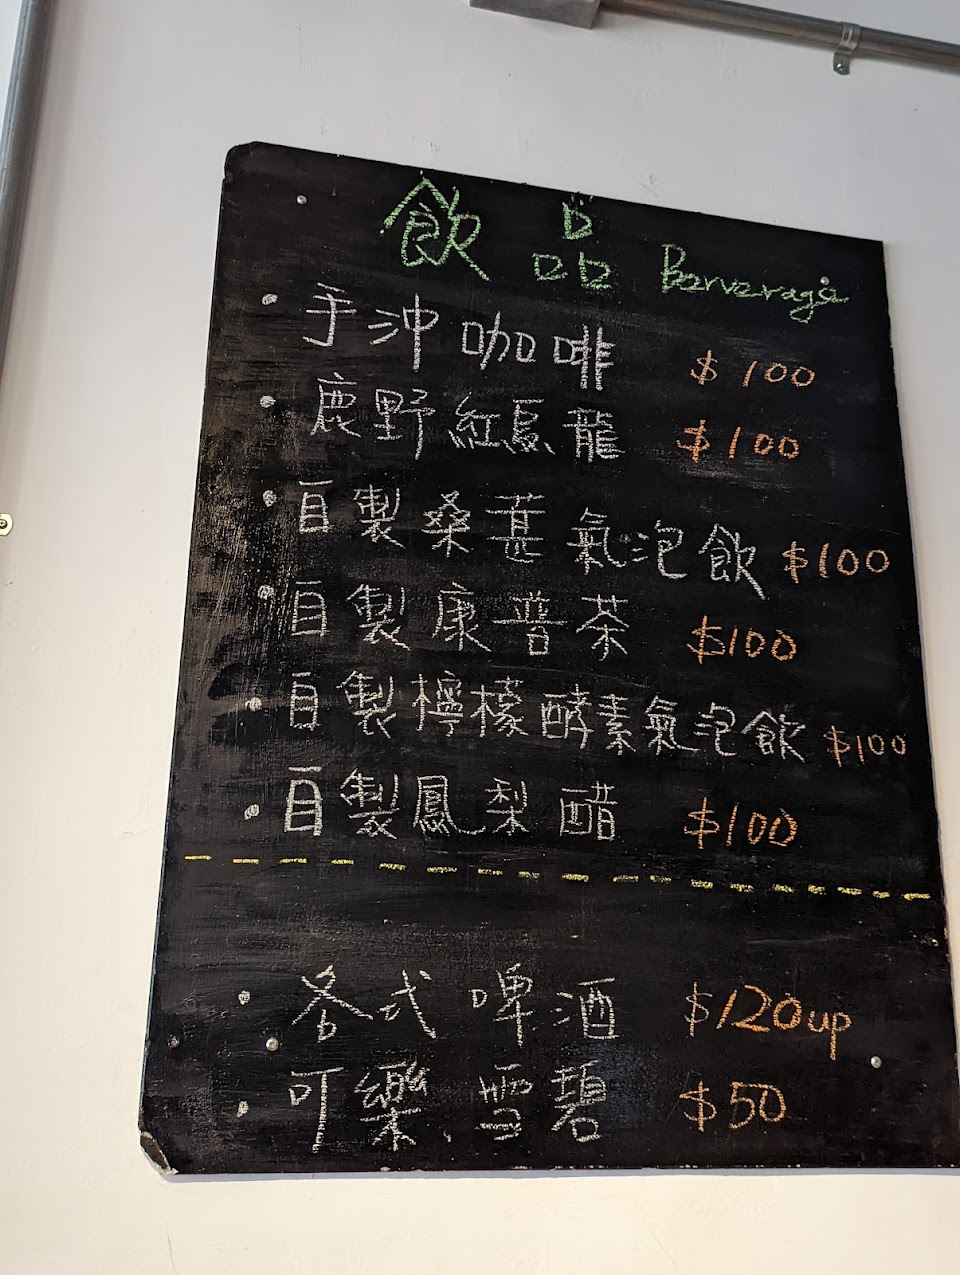 飲品 Berverage
• 手沖咖啡 $100
• 鹿野紅烏龍 $100
• 自製桑葚氣泡飲 $100
• 自製康普茶 $100
• 自製檸檬酵素氣泡飲 $100
• 自製鳳梨醋 $100
• 各式啤酒 $120up
• 可樂、雪碧 $50